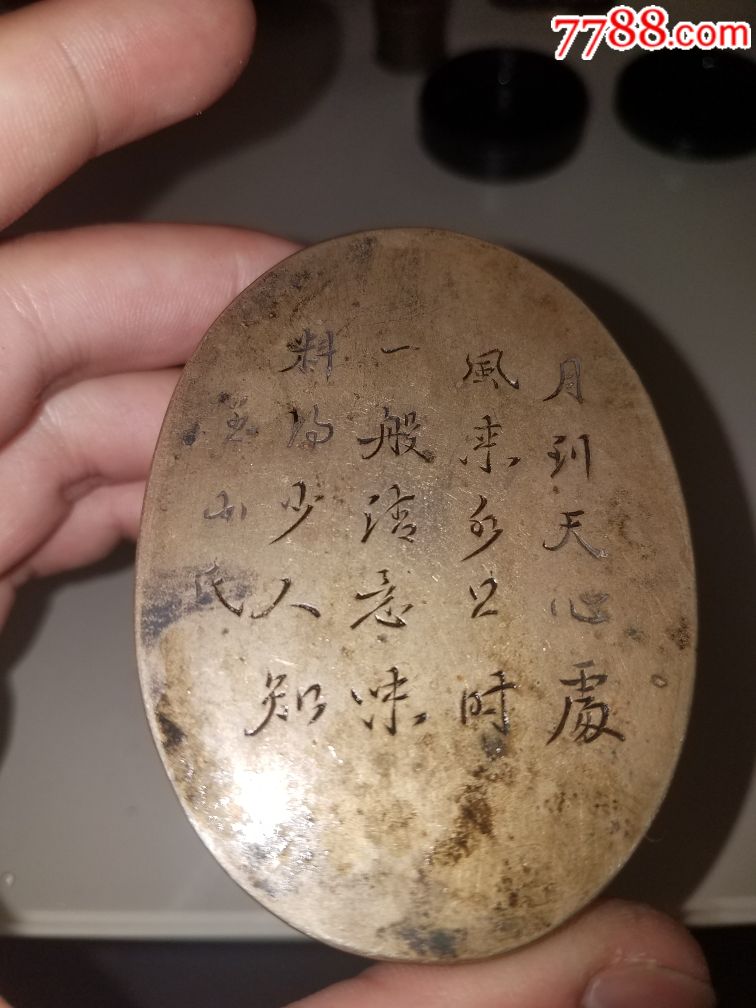 7788.com
月到天心處
風来水面时
一般清意味
料得少人知
山氏